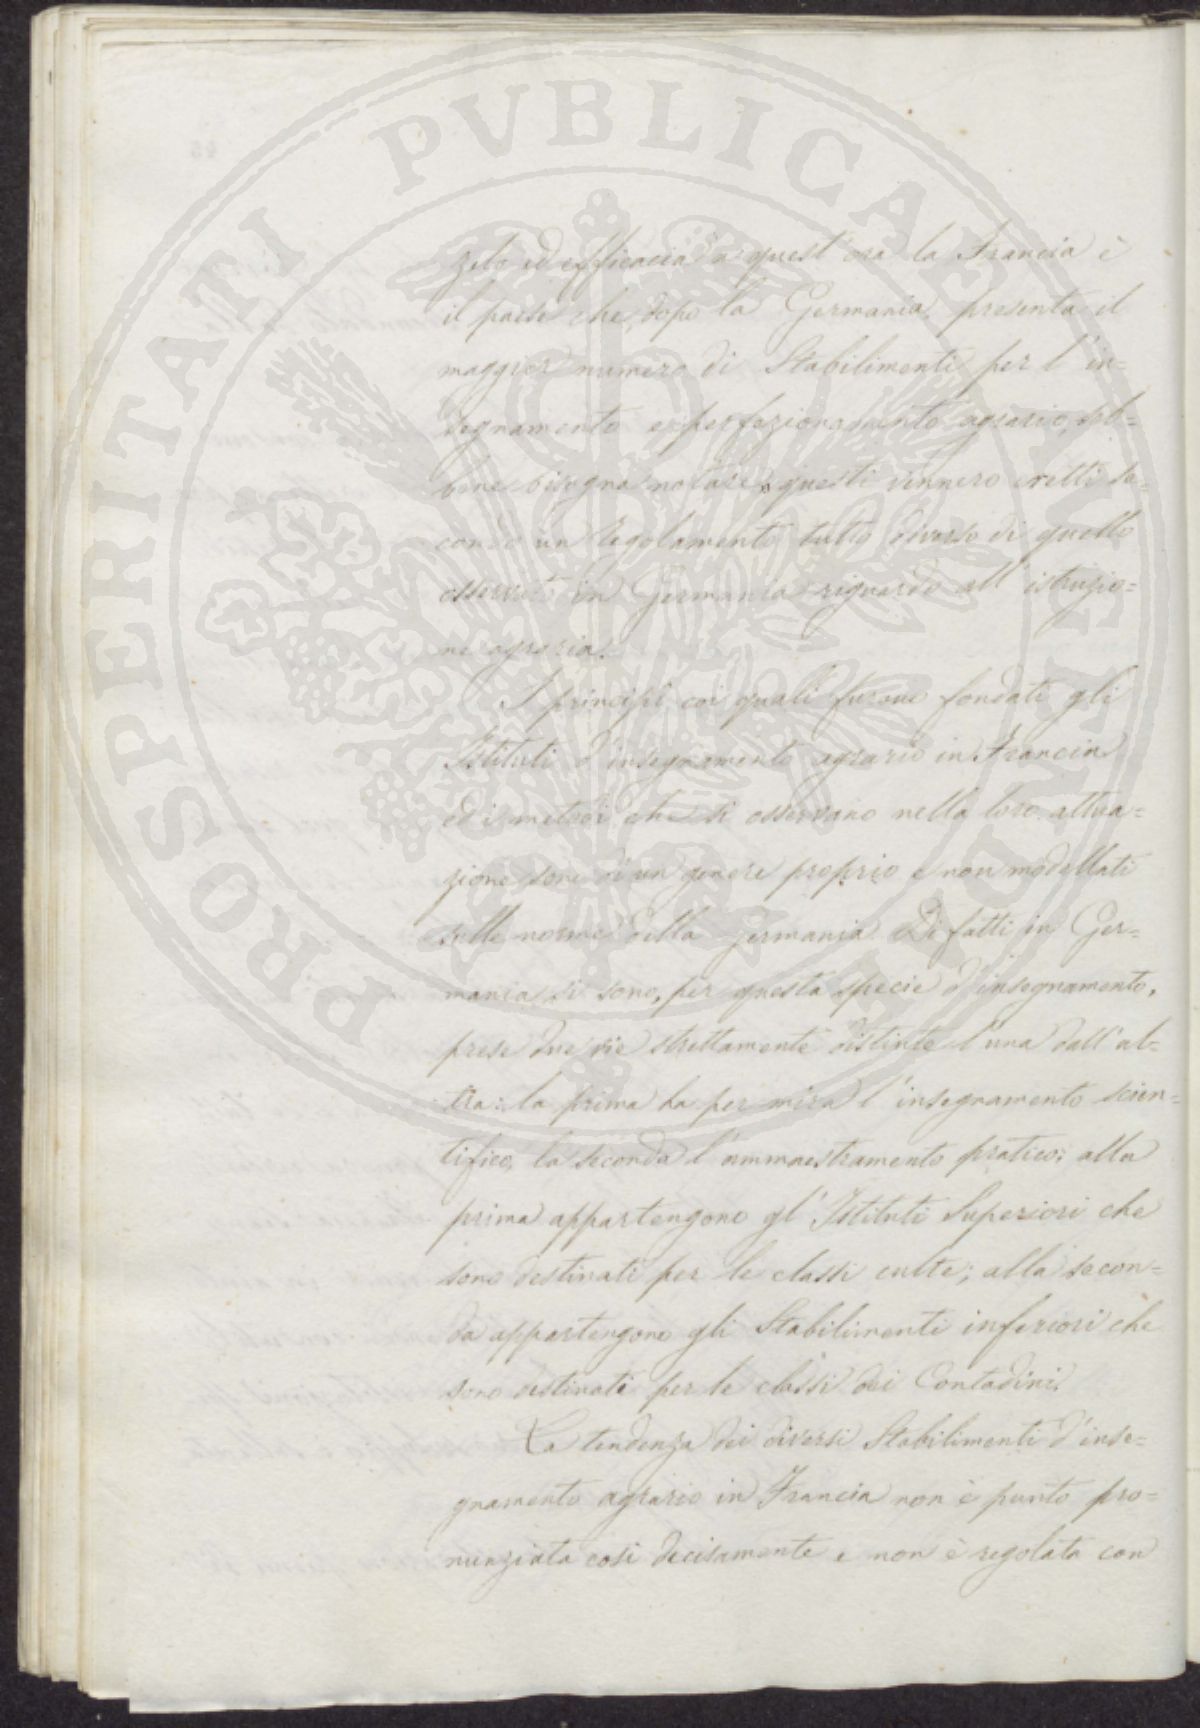 zelo ed efficacia a quest'ora la Francia è
il paese che, dopo la Germania, presenta il
maggior numero di Stabilimenti per l'in=
segnamento e perfezionamento agrario, seb=
bene bisogna notare, questi vennero eretti se=
condo un regolamento tutto diverso di quello
osservato in Germania riguardo all'istruzio=
ne agraria.
I principî coi quali furono fondati gli
Istituti d'insegnamento agrario in Francia
ed i metodi che si osservano nella loro attua=
zione sono d'un genere proprio e non modellati
sulle norme della Germania. Di fatti in Ger=
mania si sono, per questa specie d'insegnamento,
prese due vie strettamente distinte l'una dall'al=
tra: la prima ha per mira l'insegnamento scien=
tifico, la seconda l'ammaestramento pratico; alla
prima appartengono gl'Istituti Superiori che
sono destinati per le classi culte; alla secon=
da appartengono gli Stabilimenti inferiori che
sono destinati per le classi dei Contadini.
La tendenza dei diversi Stabilimenti d'inse=
gnamento agrario in Francia non è punto pro=
nunziata così decisamente e non è regolata con
PROSPERITATI PVBLICAE